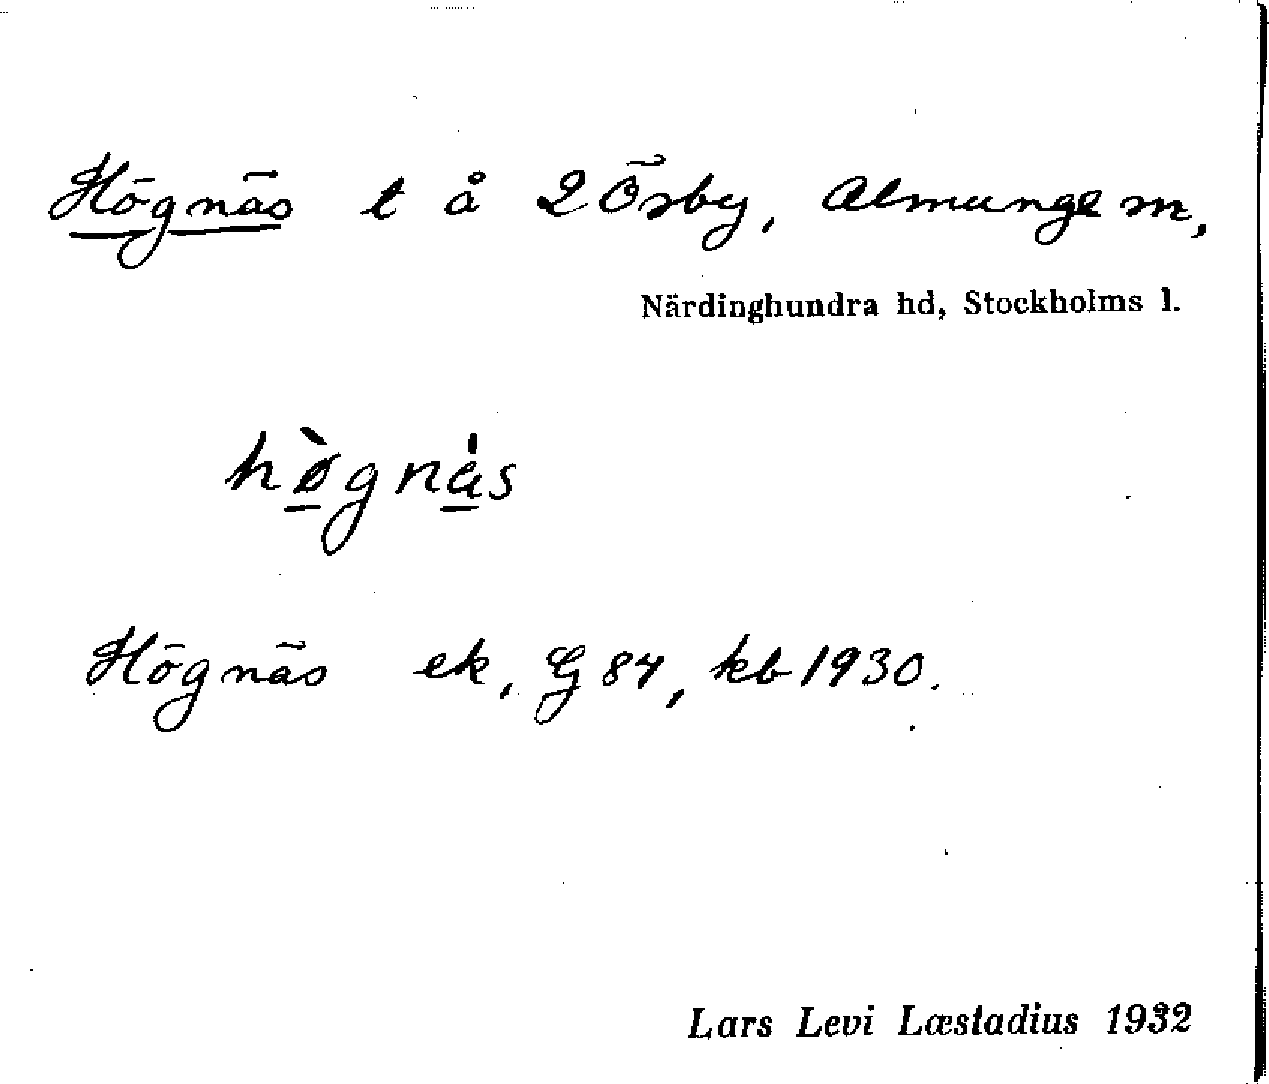 Högnäs t å 2 Örby, Almunge m,
Närdinghundra hd, Stockholms l.
hø̀gnäs
Högnäs ek, G 84, kb 1930.
Lars Levi Læstadius 1932